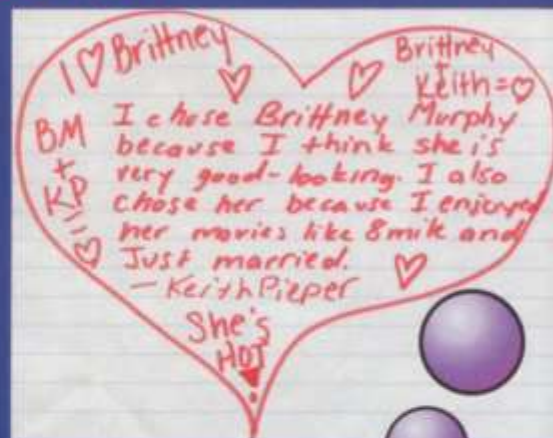 I ♡ Brittney
Brittney
+
Keith = ♡
BM
+
KP
=
♡
I chose Brittney Murphy
because I think she is
very good-looking. I also
chose her because I enjoyed
her movies like 8 mile and
Just married.
- Keith Pieper
She's
HOT!